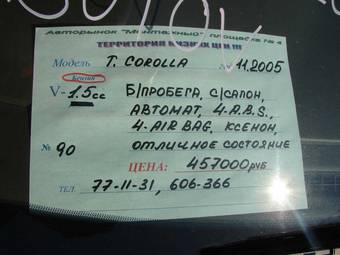 Авторынок "Монтажный" площадка № 4
ТЕРРИТОРИЯ НИЗКИХ ЦЕН !!!
Модель T. COROLLA 11.2005
Бензин
V- 1.5 cc Б/ПРОБЕГА, С/САЛОН,
АВТОМАТ, 4.A.B.S.,
4.AIR BAG, КСЕНОН,
№ 90 ОТЛИЧНОЕ СОСТОЯНИЕ
ЦЕНА: 457000 РУБ
ТЕЛ. 77-11-31, 606-366